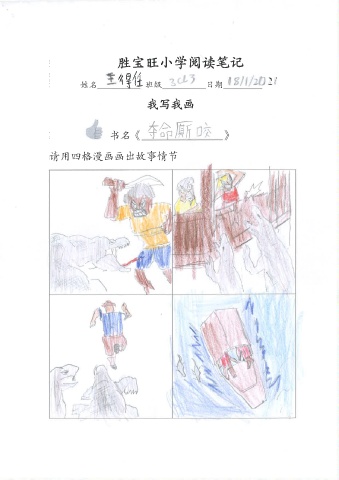 胜宝旺小学阅读笔记
姓名 王得任 班级 3CL3 日期 18/1/2021
我写我画
书名《 夺命厮咬 》
请用四格漫画画出故事情节